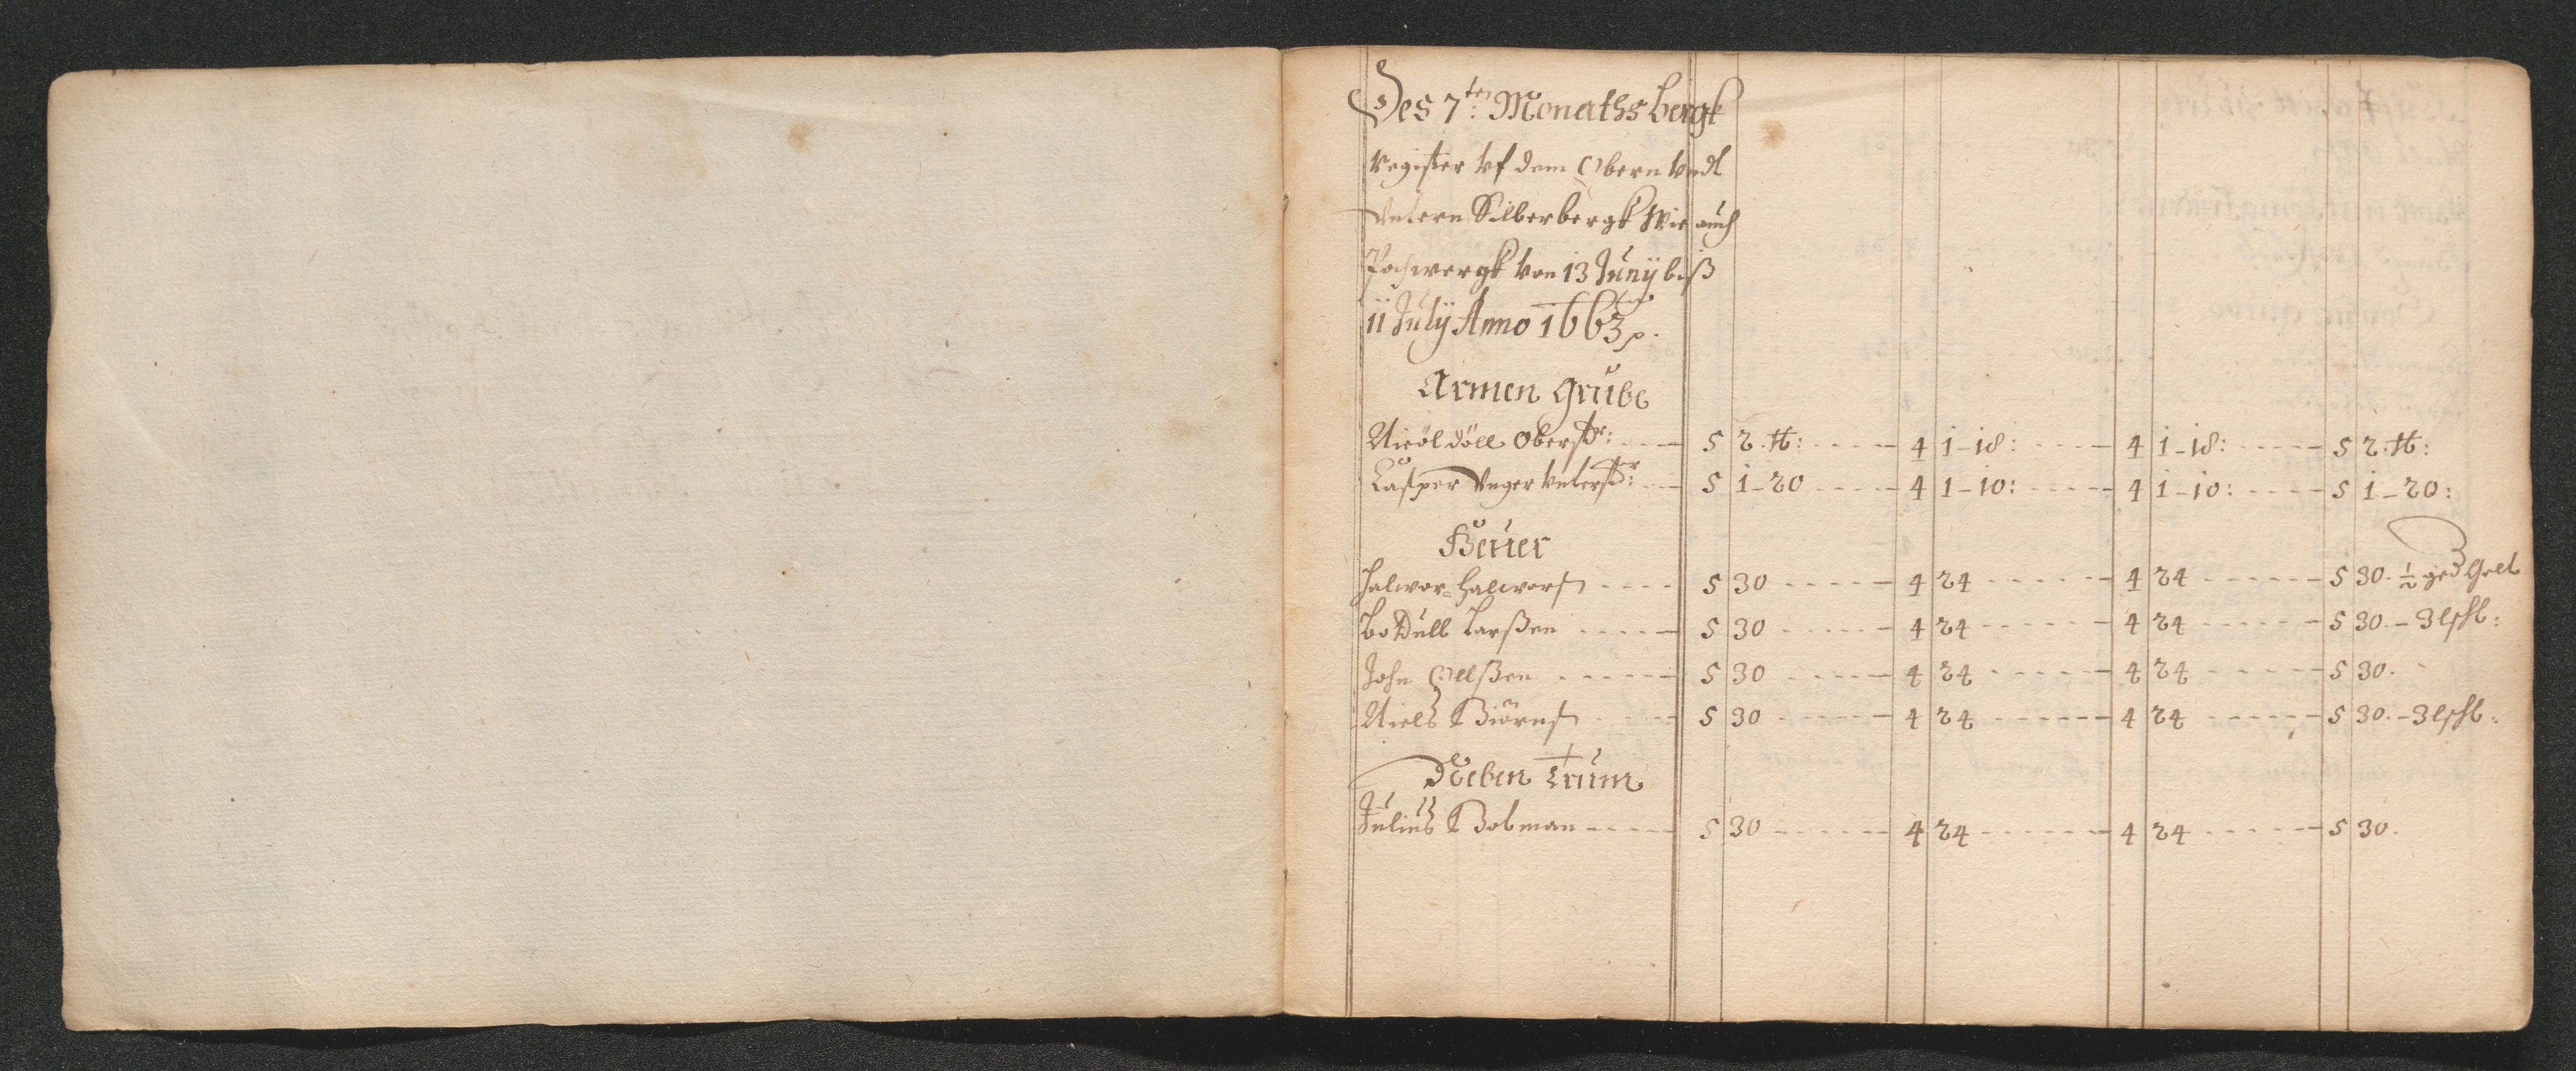 Des 7ten: Monaths bergk
Register vf dem Obern vnd
Vntern Silberbergk Wie auch
Pochwergk von 13 Junÿ biß
11 Julÿ Anno 1663
Armen Grube
Nicöl Döll Oberstr: 5 2 tt: 4 1-18: 4 1-18: 5 2 tt:
Casper Vnger Vnterstr: 5 1-20 4 1-10: 4 1-10: 5 1-20:
Heüer
Halvor Halvors 5 30 4 24 4 24 5 30. ½
Larßen 5 30 4 24 4 24 5 30.
John Ollßen 5 30 4 24 4 24 5 30.
Niels Biörns 5 30 4 24 4 24 5 30.
Neben Trüm
Juliüs 5 30 4 24 4 24 5 30.